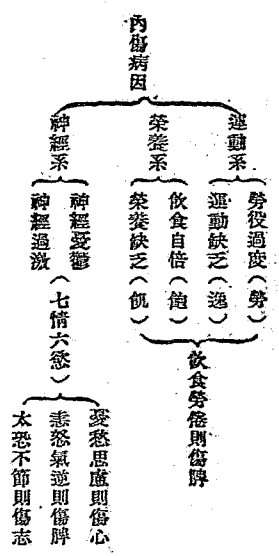 內傷病因
運動系
勞役過度（勞）
運動缺乏（逸）
榮養系
飲食自倍（飽）
榮養缺乏（飢）
飲食勞倦則傷脾
神經系
神經憂鬱
神經過激
（七情六慾）
憂愁思慮則傷心
恚怒氣逆則傷脾
太恐不節則傷志